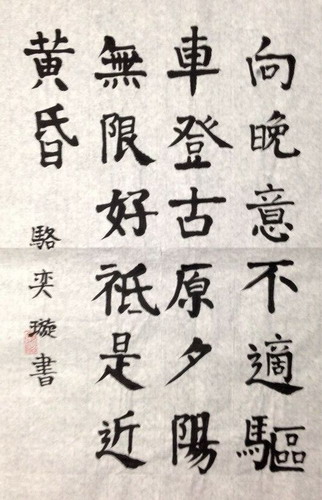 向晚意不適驅
車登古原夕陽
無限好祗是近
黃昏
駱奕璇書